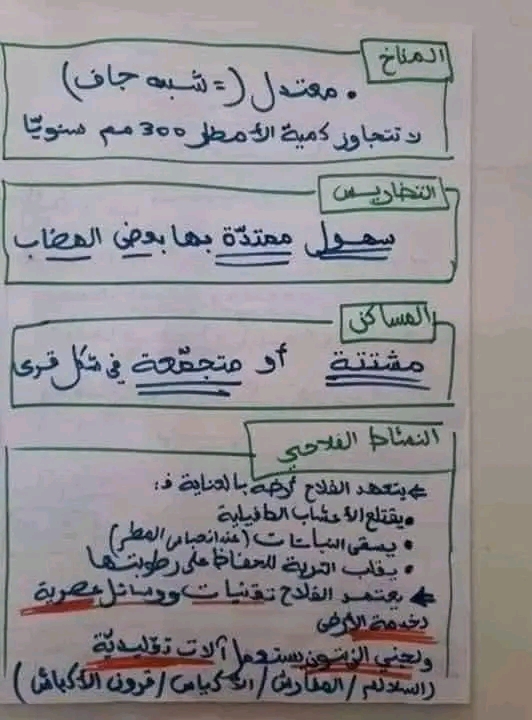 المناخ
• معتدل (= شبه جاف)
لا تتجاوز كمية الأمطار 300 مم سنويّا
التضاريس
سهول ممتدّة بها بعض الهضاب
المساكن
مشتتة أو متجمّعة في شكل قرى
النشاط الفلاحي
← يتعهد الفلاح أرضه بالعناية فـ:
• يقتلع الأعشاب الطفيلية
• يسقي النباتات (عند انحباس المطر)
• يقلب التربة للحفاظ على رطوبتها
← يعتمد الفلاح تقنيات ووسائل عصرية
لخدمة الأرض
ولجني الزيتون يستعمل آلات تقليديّة
(السلالم / المفارش / الأكياس / قرون الأكباش)